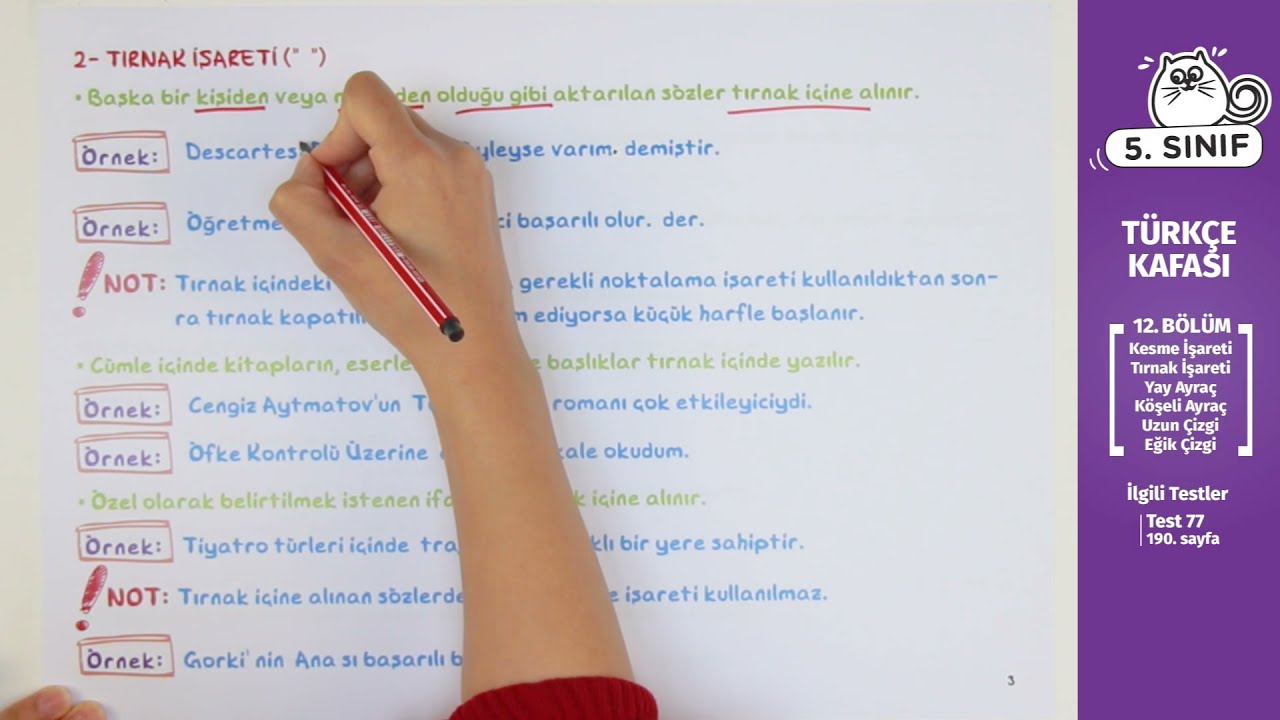 2- TIRNAK İŞARETİ (" ")
• Başka bir kişiden veya olduğu gibi aktarılan sözler tırnak içine alınır.
Örnek: Descartes varım. demiştir.
Örnek: başarılı olur. der.
NOT: Tırnak içindeki gerekli noktalama işareti kullanıldıktan son-
ra tırnak ediyorsa küçük harfle başlanır.
• Cümle içinde kitapların, başlıklar tırnak içinde yazılır.
Örnek: Cengiz Aytmatov'un romanı çok etkileyiciydi.
Örnek: Öfke Kontrolü Üzerine okudum.
• Özel olarak belirtilmek istenen içine alınır.
Örnek: Tiyatro türleri içinde bir yere sahiptir.
NOT: Tırnak içine alınan işareti kullanılmaz.
Örnek: Gorki'nin Ana sı başarılı
3
5. SINIF
TÜRKÇE
KAFASI
12. BÖLÜM
Kesme İşareti
Tırnak İşareti
Yay Ayraç
Köşeli Ayraç
Uzun Çizgi
Eğik Çizgi
İlgili Testler
Test 77
190. sayfa